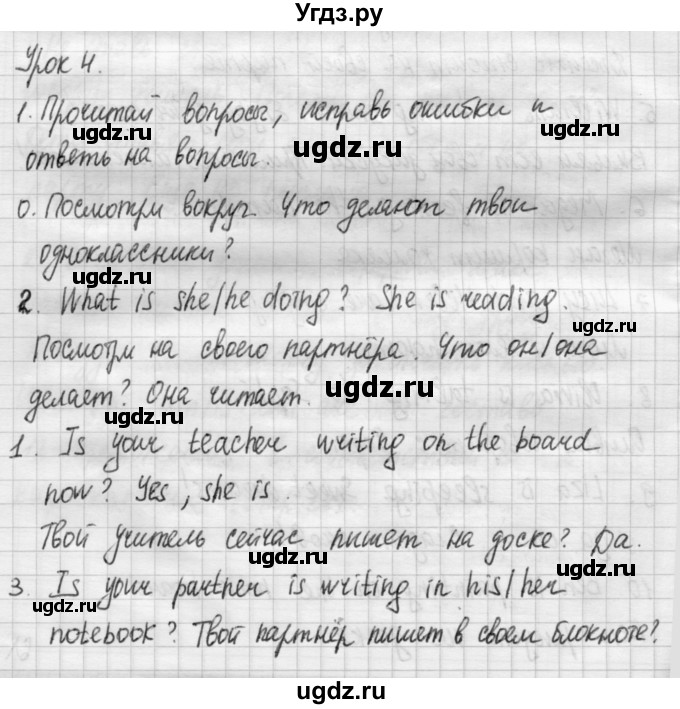 Угдз.ру
Урок 4.
1. Прочитай вопросы, исправь ошибки и
ugdz.ru
ugdz.ru
ответь на вопросы.
ugdz.ru
ugdz.ru
0. Посмотри вокруг. Что делают твои
ugdz.ru
ugdz.ru
одноклассники?
ugdz.ru
2. What is she/he doing? She is reading.
ugdz.ru
Посмотри на своего партнёра. Что он/она
ugdz.ru
делает? Она читает.
ugdz.ru
ugdz.ru
1. Is your teacher writing on the board
ugdz.ru
now? Yes, she is.
ugdz.ru
Твой учитель сейчас пишет на доске? Да.
ugdz.ru
3. Is your partner is writing in his/her
ugdz.ru
ugdz.ru
notebook? Твой партнёр пишет в своем блокноте?
ugdz.ru
ugdz.ru